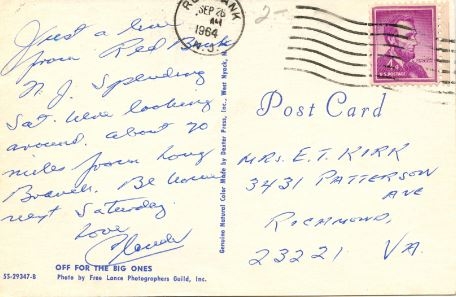 Just a line
from Red Bank
N. J. Spending
Sat. here looking
around. about 70
miles from Long
Branch. Be home
next Saturday.
Love
Claude
OFF FOR THE BIG ONES
55-29347-B
Photo by Free Lance Photographers Guild, Inc.
Genuine Natural Color Made by Dexter Press, Inc., West Nyack,
RED BANK
SEP 26
AM
1964
N. J.
2-
4¢
U.S. POSTAGE
Post Card
MRS. E. T. KIRK
3431 PATTERSON
AVE
RICHMOND,
23221 VA.